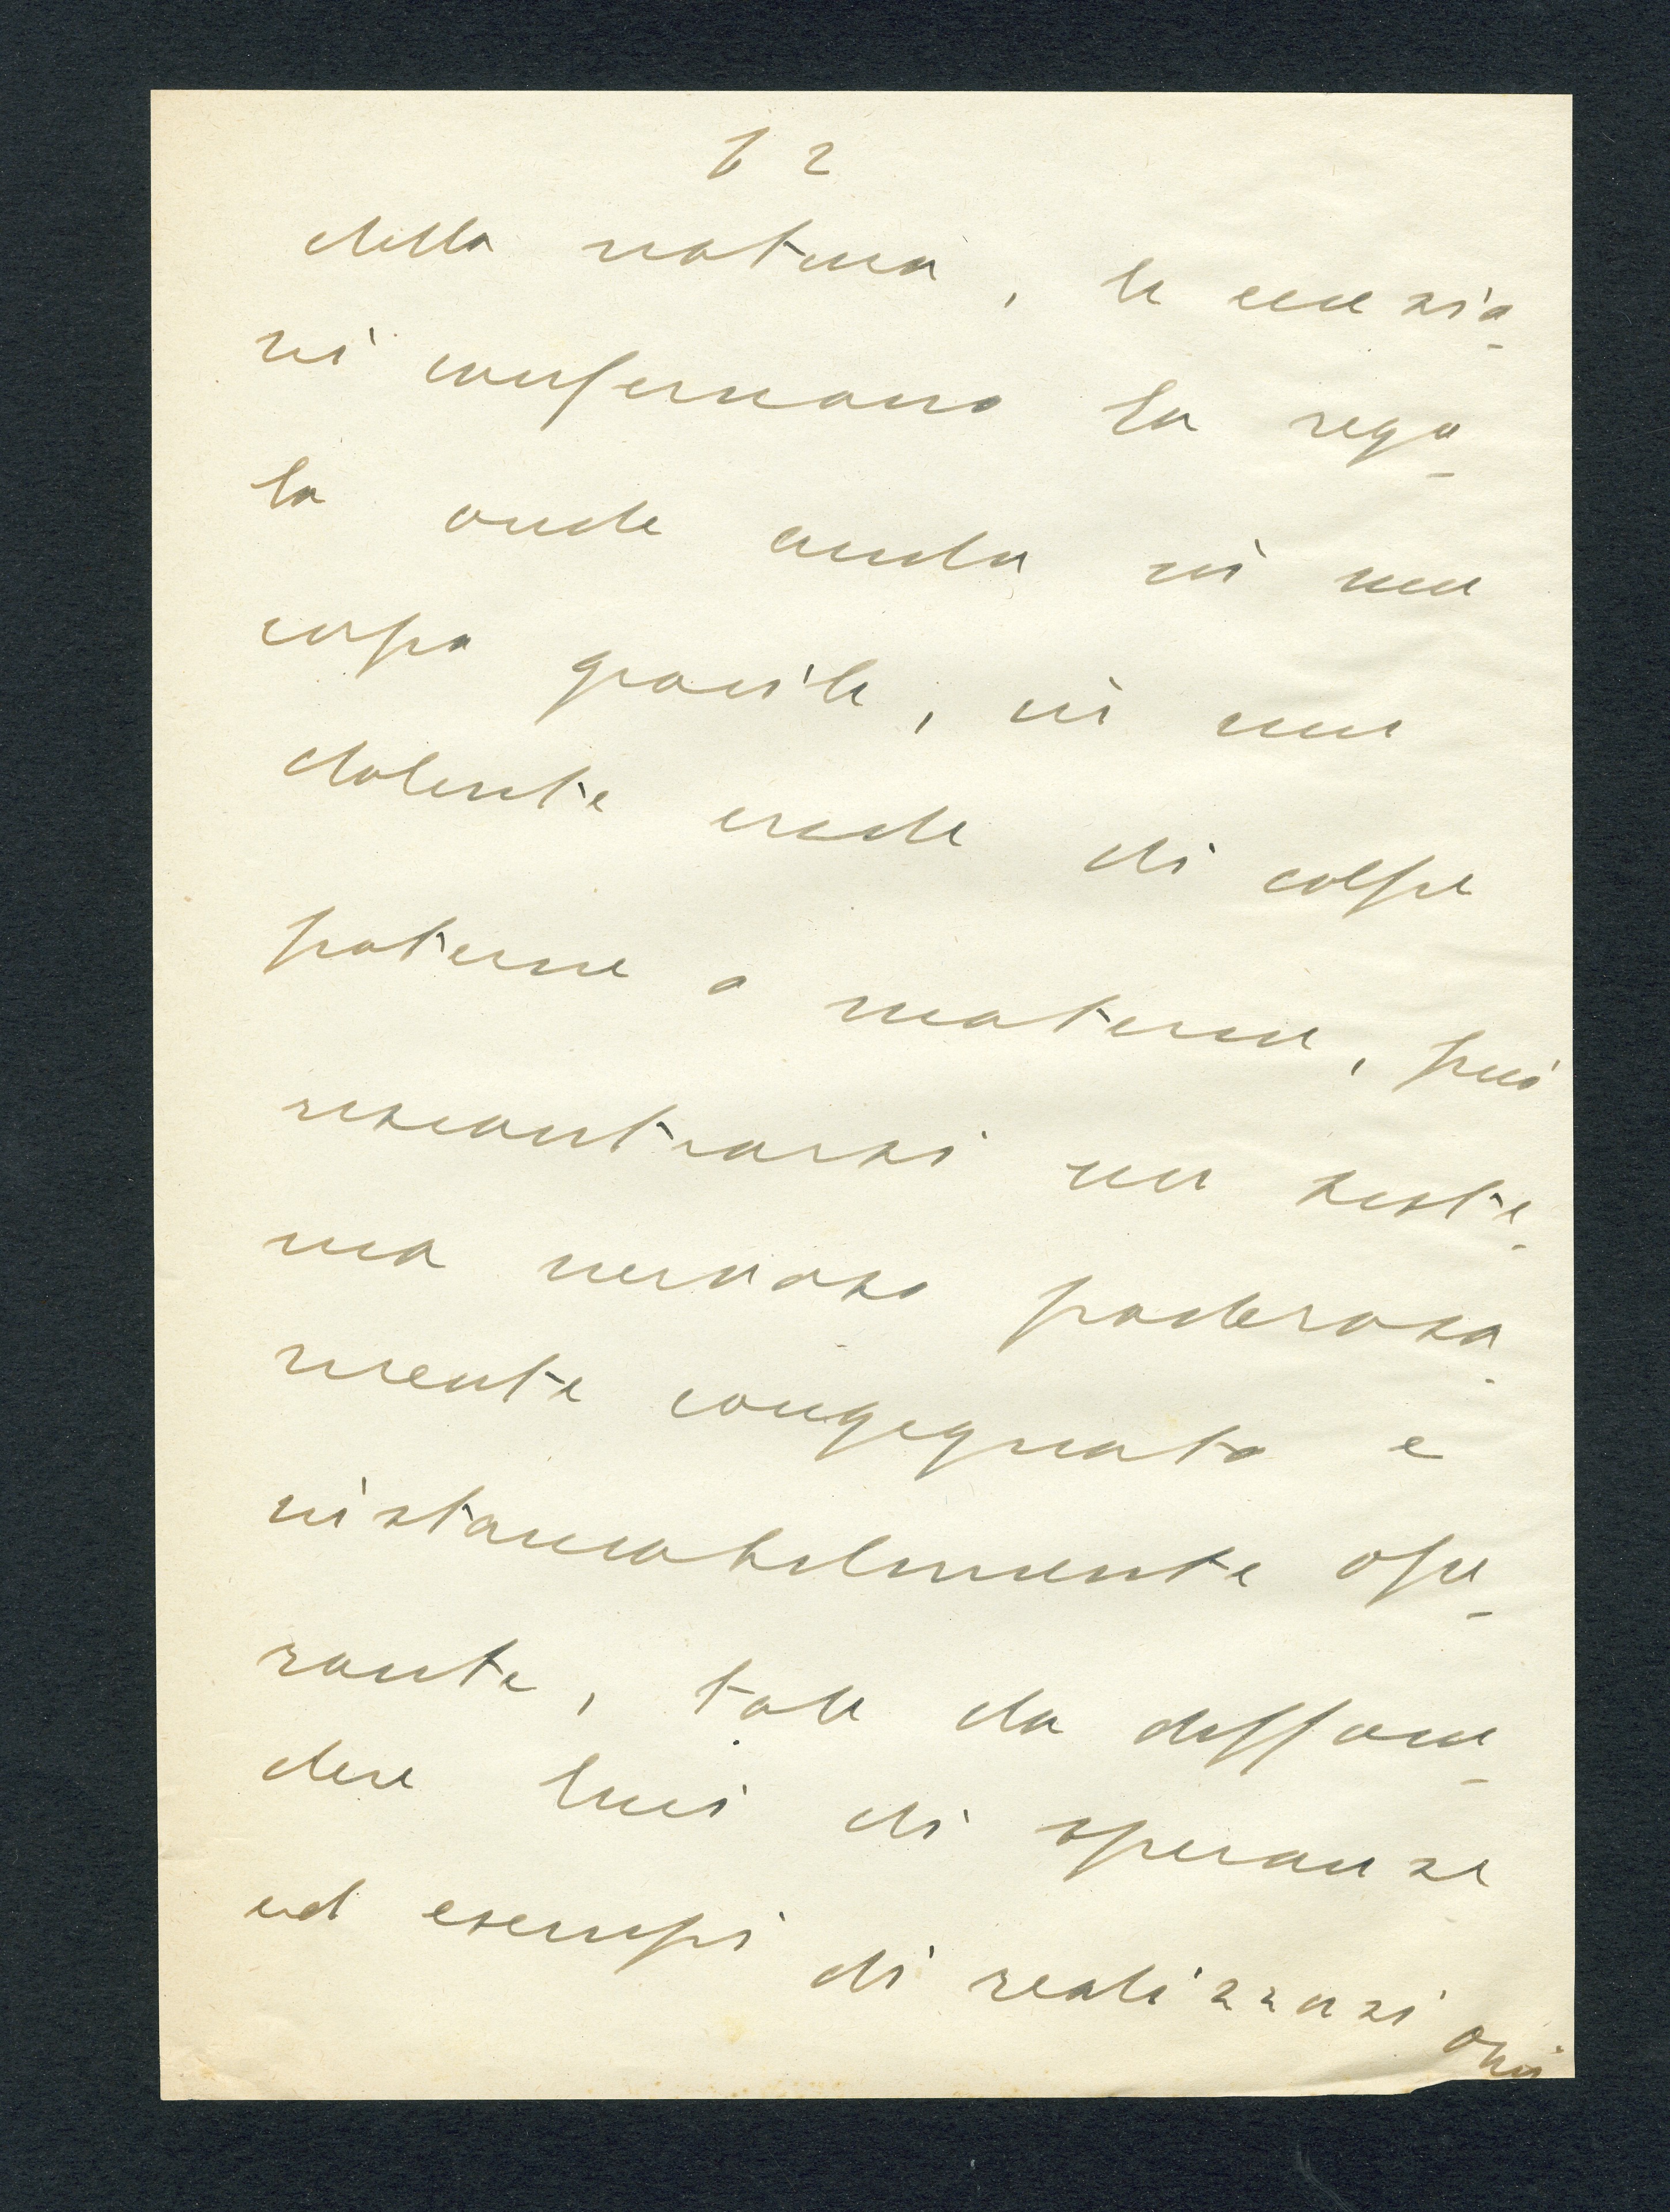 12
della natura, le eccezio-
ni confermano la rego-
la onde anche in un
corpo gracile, in un
dolente erede di colpe
paterne o materne, può
riscontrarsi un siste-
ma nervoso poderosa-
mente congegnato e
instancabilmente ope-
rante, tale da diffon-
dere luci di speranze
ed esempi di realizzazioni